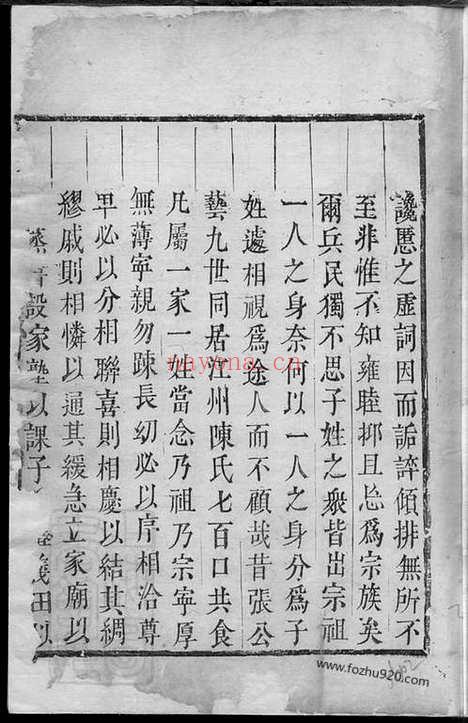 讒慝之虛詞因而詬誶傾排無所不
至非惟不知雍睦抑且忘為宗族矣
爾兵民獨不思子姓之衆皆出宗祖
一人之身奈何以一人之身分為子
姓遽相視為途人而不顧哉昔張公
藝九世同居江州陳氏七百口共食
凡屬一家一姓當念乃祖乃宗寧厚
無薄寧親勿踈長幼必以序相洽尊
卑必以分相聯喜則相慶以結其綢
繆戚則相憐以通其緩急立家廟以
設家塾以課子田以
nayona.cn
www.fozhu920.com